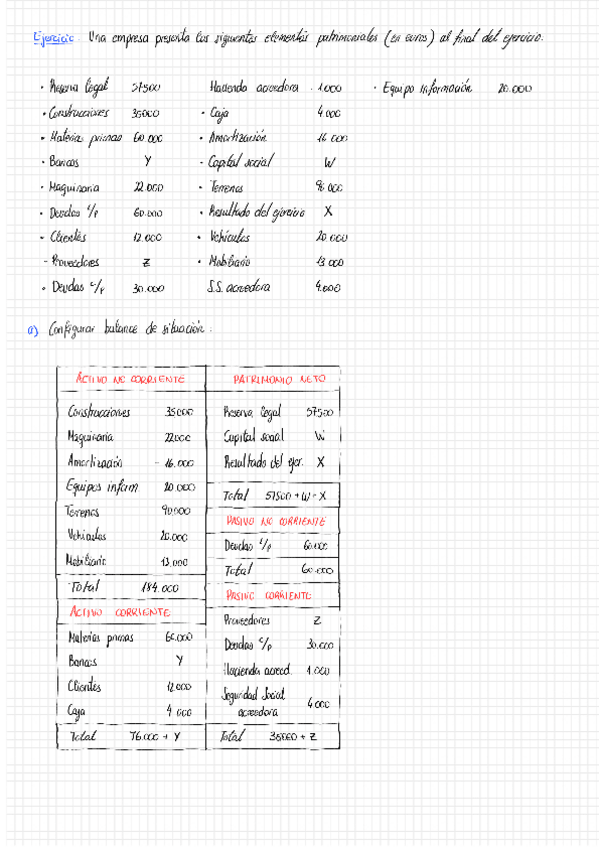 Ejercicio: Una empresa presenta los siguientes elementos patrimoniales (en euros) al final del ejercicio.
· Reserva legal 57500 Hacienda acreedora 1.000 · Equipo información 20.000
· Construcciones 35000 · Caja 4.000
· Materias primas 60.000 · Amortización 16.000
· Bancos Y - Capital social W
· Maquinaria 22.000 · Terrenos 90.000
· Deudas L/P 60.000 · Resultado del ejercicio X
· Clientes 12.000 · Vehículos 20.000
- Proveedores Z · Mobiliario 13.000
· Deudas C/P 30.000 S.S. acreedora 4.000
a) Configurar balance de situación:
ACTIVO NO CORRIENTE
Construcciones 35000
Maquinaria 22000
Amortización - 16.000
Equipos inform. 20.000
Terrenos 90.000
Vehículos 20.000
Mobiliario 13.000
Total 184.000
ACTIVO CORRIENTE
Materias primas 60.000
Bancos Y
Clientes 12.000
Caja 4.000
Total 76.000 + Y
PATRIMONIO NETO
Reserva legal 57500
Capital social W
Resultado del ejer. X
Total 57500 + W + X
PASIVO NO CORRIENTE
Deudas L/P 60.000
Total 60.000
PASIVO CORRIENTE
Proveedores Z
Deudas C/P 30.000
Hacienda acreed. 1.000
Seguridad Social
acreedora 4.000
Total 35000 + Z